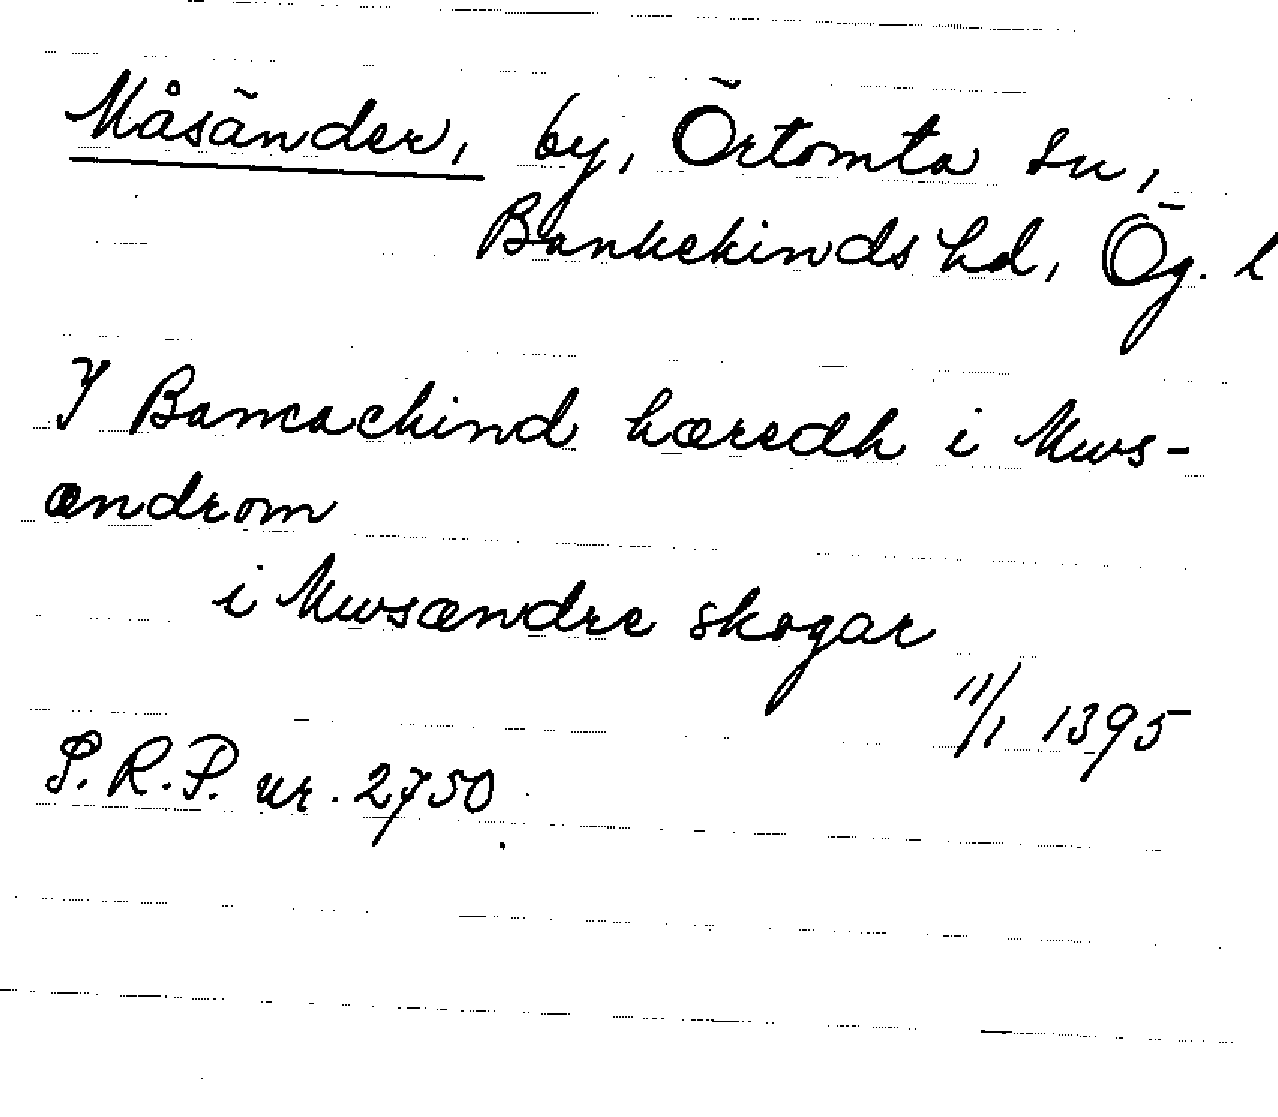 Måsänder, by, Örtomta sn,
Bankekinds hd, Ög. l
I Bancackind hæredh i Mws-
ændrom
i Mwsændre skogar
11/1 1395
S.R.P. nr. 2750